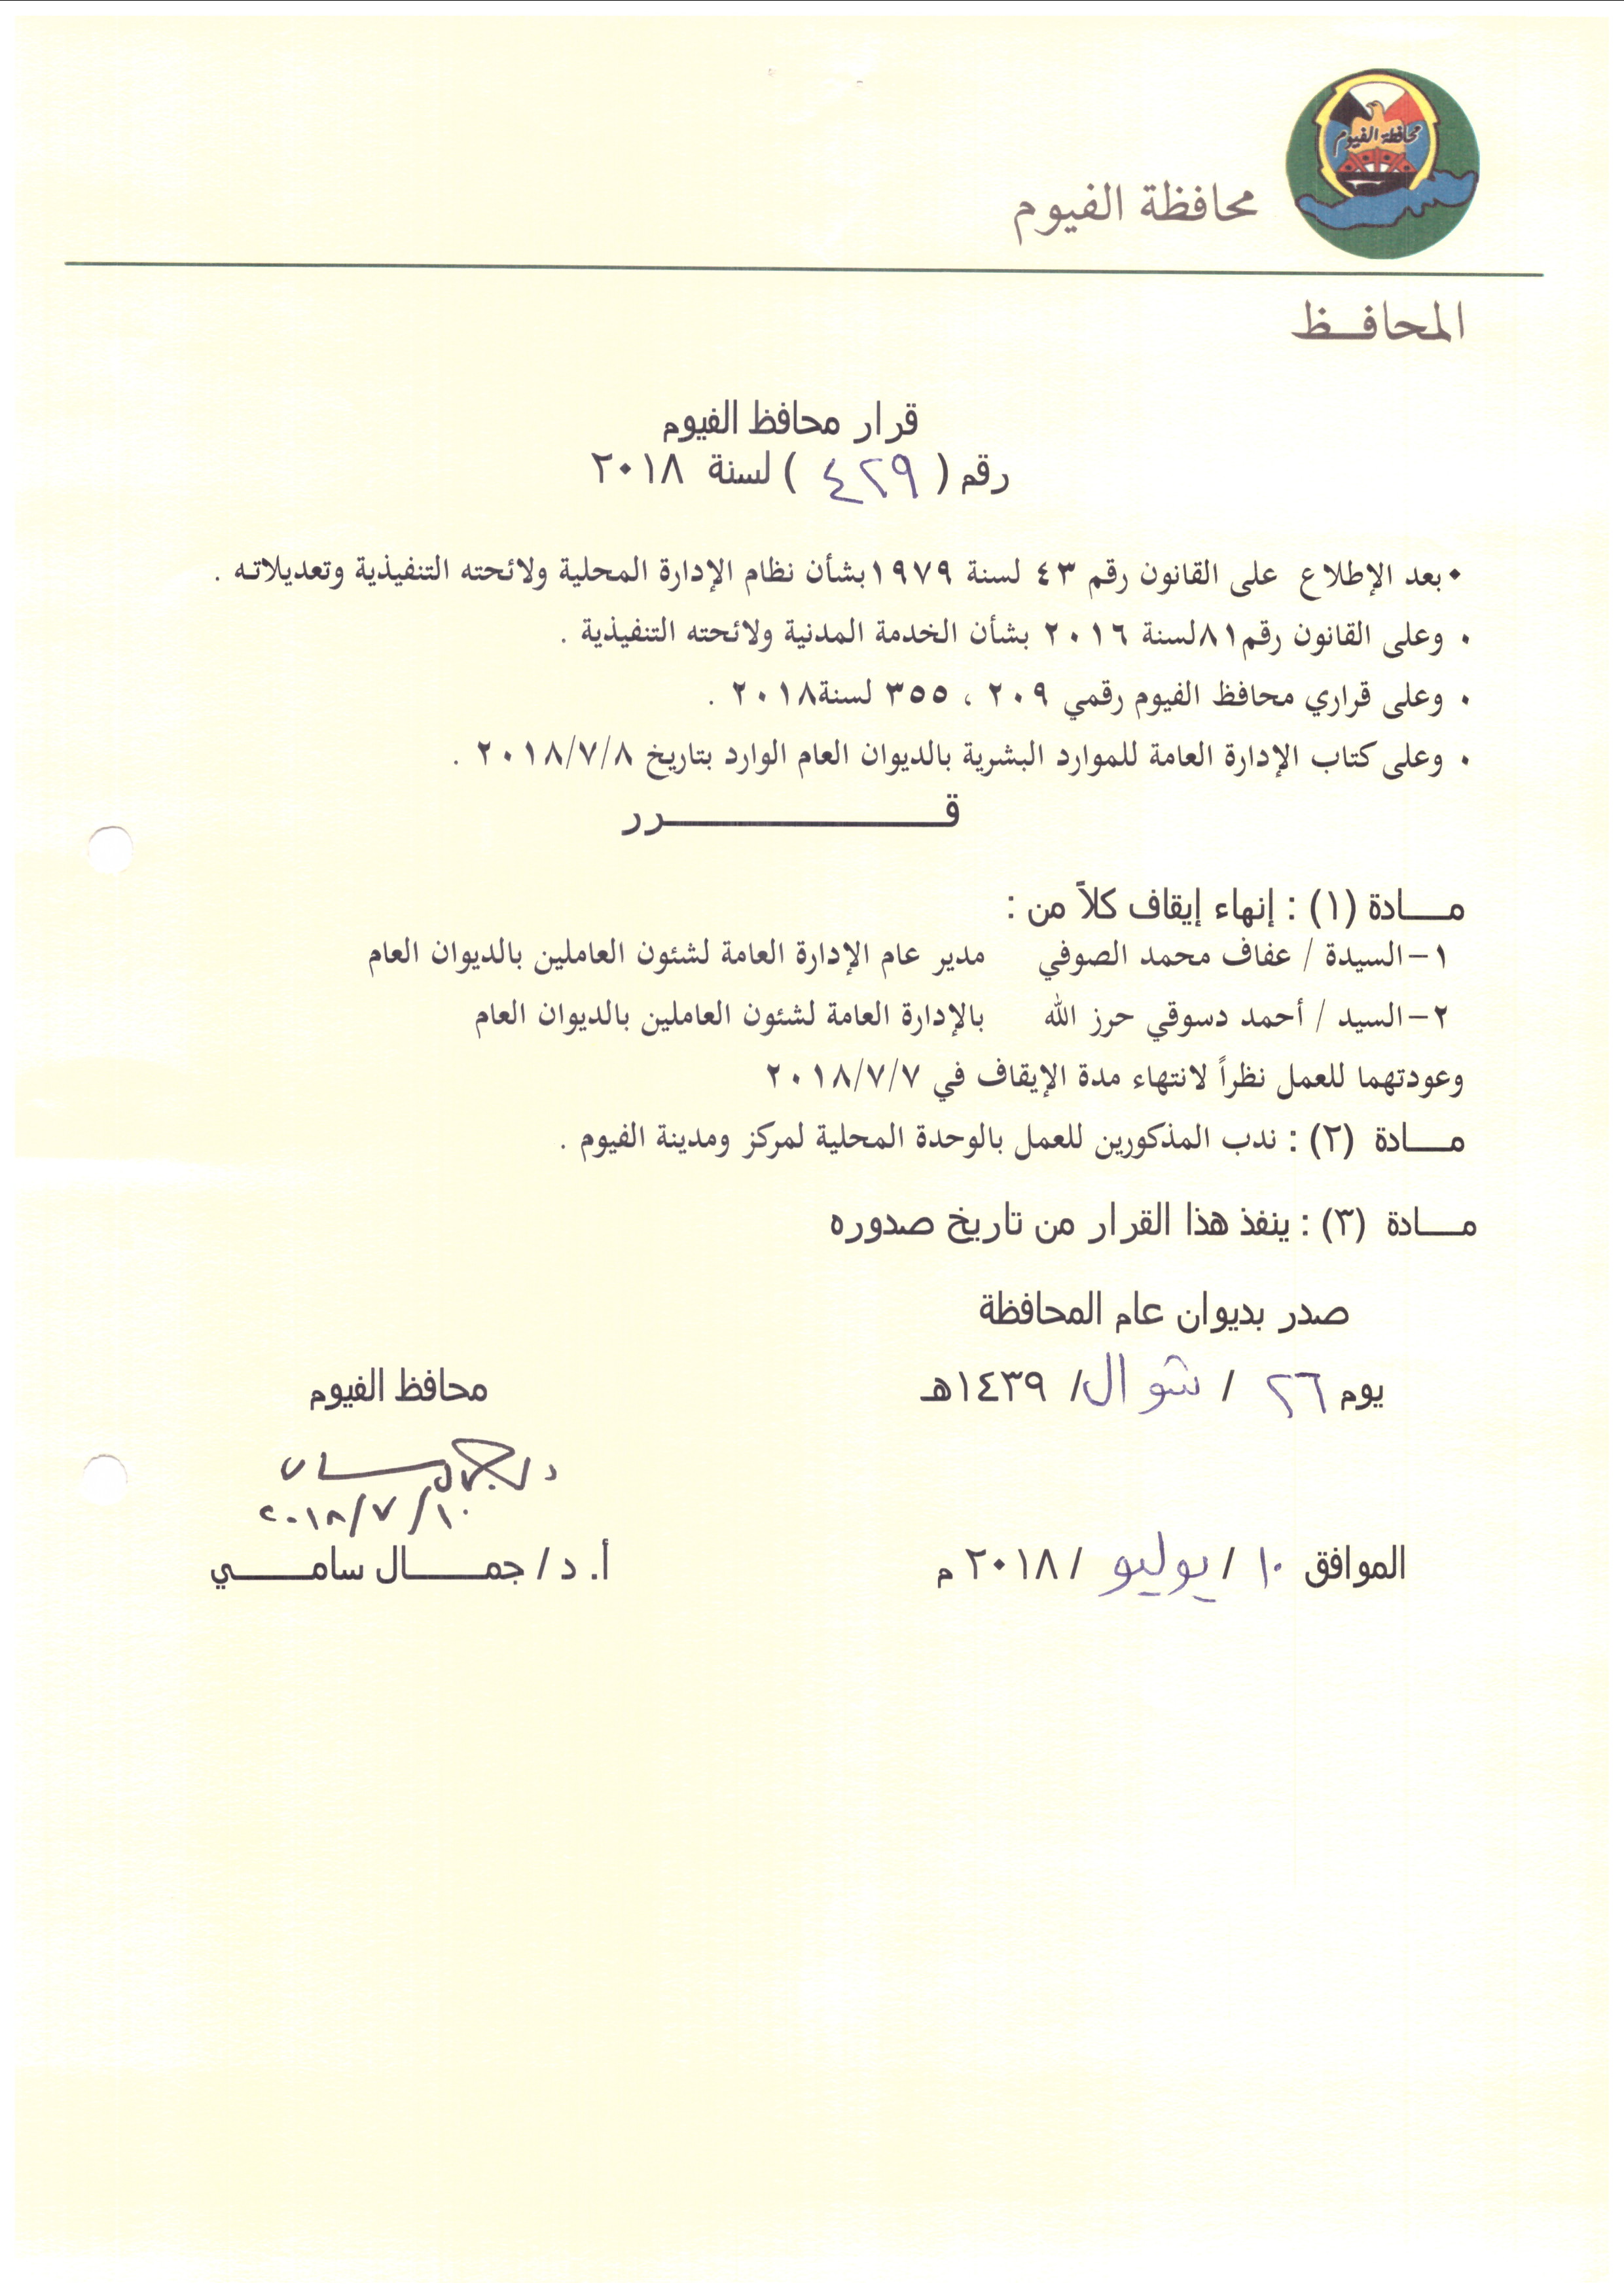 محافظة الفيوم
محافظة الفيوم
المحافــظ
قرار محافظ الفيوم
رقم ( ٤٢٩ ) لسنة ٢٠١٨
• بعد الإطلاع على القانون رقم ٤٣ لسنة ١٩٧٩بشأن نظام الإدارة المحلية ولائحته التنفيذية وتعديلاتـه .
• وعلى القانون رقم٨١لسنة ٢٠١٦ بشأن الخدمة المدنية ولائحته التنفيذية .
• وعلى قراري محافظ الفيوم رقمي ٢٠٩ ، ٣٥٥ لسنة٢٠١٨ .
• وعلى كتاب الإدارة العامة للموارد البشرية بالديوان العام الوارد بتاريخ ٢٠١٨/٧/٨ .
قــــــــــــــرر
مـــــادة (١) : إنهاء إيقاف كلاً من :
١–السيدة / عفاف محمد الصوفي مدير عام الإدارة العامة لشئون العاملين بالديوان العام
٢–السيد / أحمد دسوقي حرز الله بالإدارة العامة لشئون العاملين بالديوان العام
وعودتهما للعمل نظراً لانتهاء مدة الإيقاف في ٢٠١٨/٧/٧
مـــــادة (٢) : ندب المذكورين للعمل بالوحدة المحلية لمركز ومدينة الفيوم .
مـــــادة (٣) : ينفذ هذا القرار من تاريخ صدوره
صدر بديوان عام المحافظة
يوم ٢٦ / شوال/ ١٤٣٩هـ
محافظ الفيوم
٢٠١٨/٧/١٠
الموافق ١٠ /يوليو / ٢٠١٨ م
أ. د/ جمــــــال سامــــــي